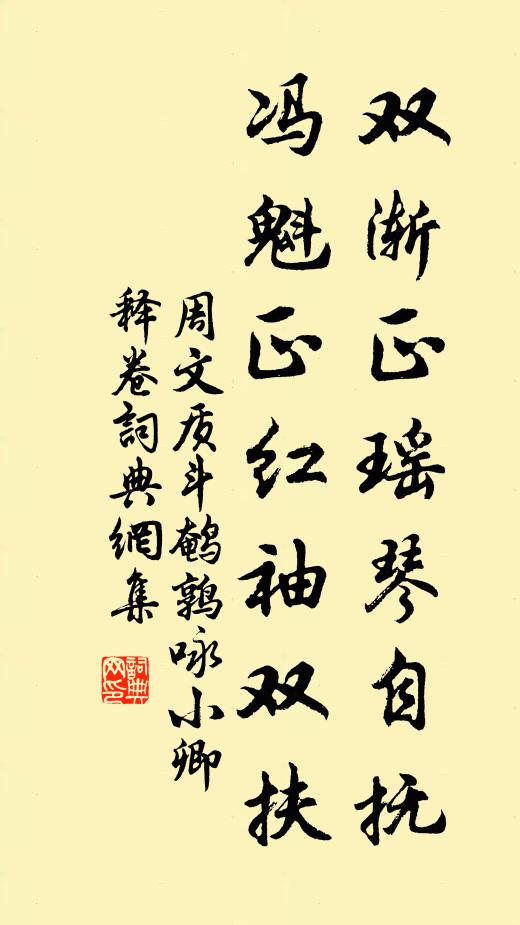 双渐正瑶琴自抚
冯魁正红袖双扶
周文质斗鹌鹑咏小卿
释卷詞典網集
詞典网印